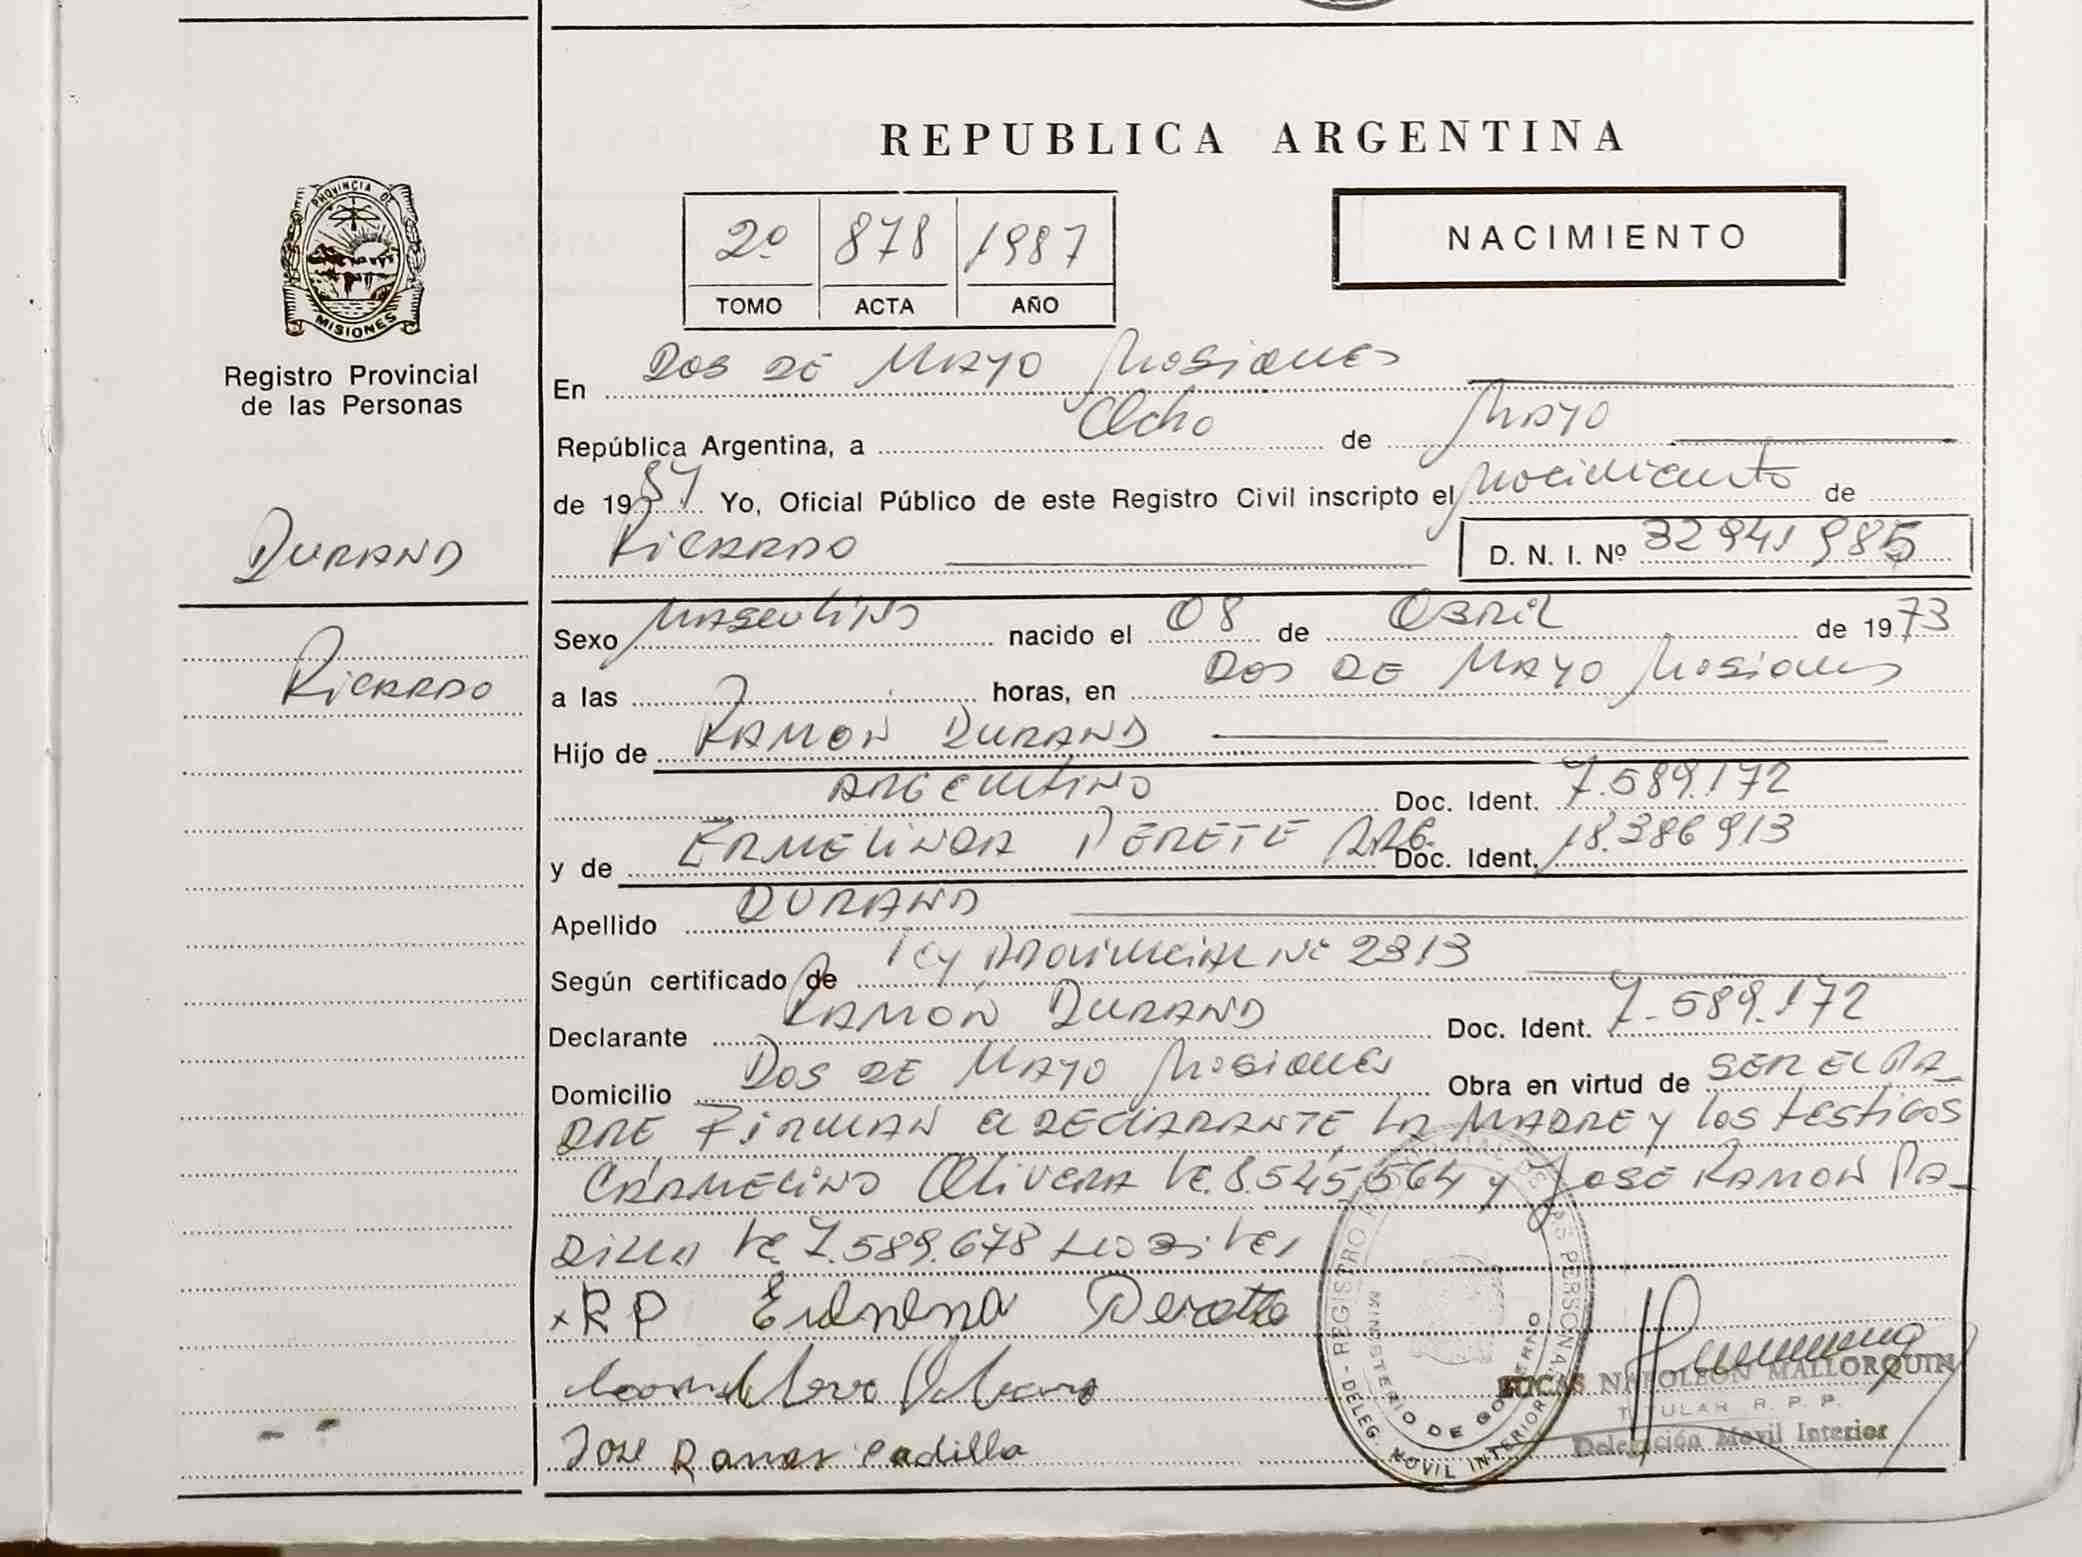 REPUBLICA ARGENTINA
PROVINCIA DE
MISIONES
Registro Provincial
de las Personas
DURAND
RICARDO
2º 878 1987
TOMO ACTA AÑO
NACIMIENTO
En DOS DE MAYO Misiones
República Argentina, a Ocho de MAYO
de 1987 Yo, Oficial Público de este Registro Civil inscripto el Nacimiento de
RICARDO D. N. I. Nº 32941985
Sexo MASCULINO nacido el 08 de ABRIL de 1973
a las horas, en DOS DE MAYO Misiones
Hijo de RAMON DURAND
ARGENTINO Doc. Ident. 7.589.172
y de ERMELINDA PERETE ARG. Doc. Ident. 18.386913
Apellido DURAND
Según certificado de Ley PROVINCIAL Nº 2313
Declarante RAMÓN DURAND Doc. Ident. 7.589.172
Domicilio DOS DE MAYO Misiones Obra en virtud de SER EL PA_
DRE FIRMAN el DECLARANTE, LA MADRE y los testigos
CARMELINO Olivera 8.545,564 y JOSE RAMON PA_
DILLA 7.589.678
x RP
Jose Ramon Padilla
REGISTRO DE LAS PERSONAS - DELEG. MOVIL INTERIOR
MINISTERIO DE GOBIERNO
LUCAS NAPOLEON MALLORQUIN
TITULAR R. P. P.
Delegación Movil Interior